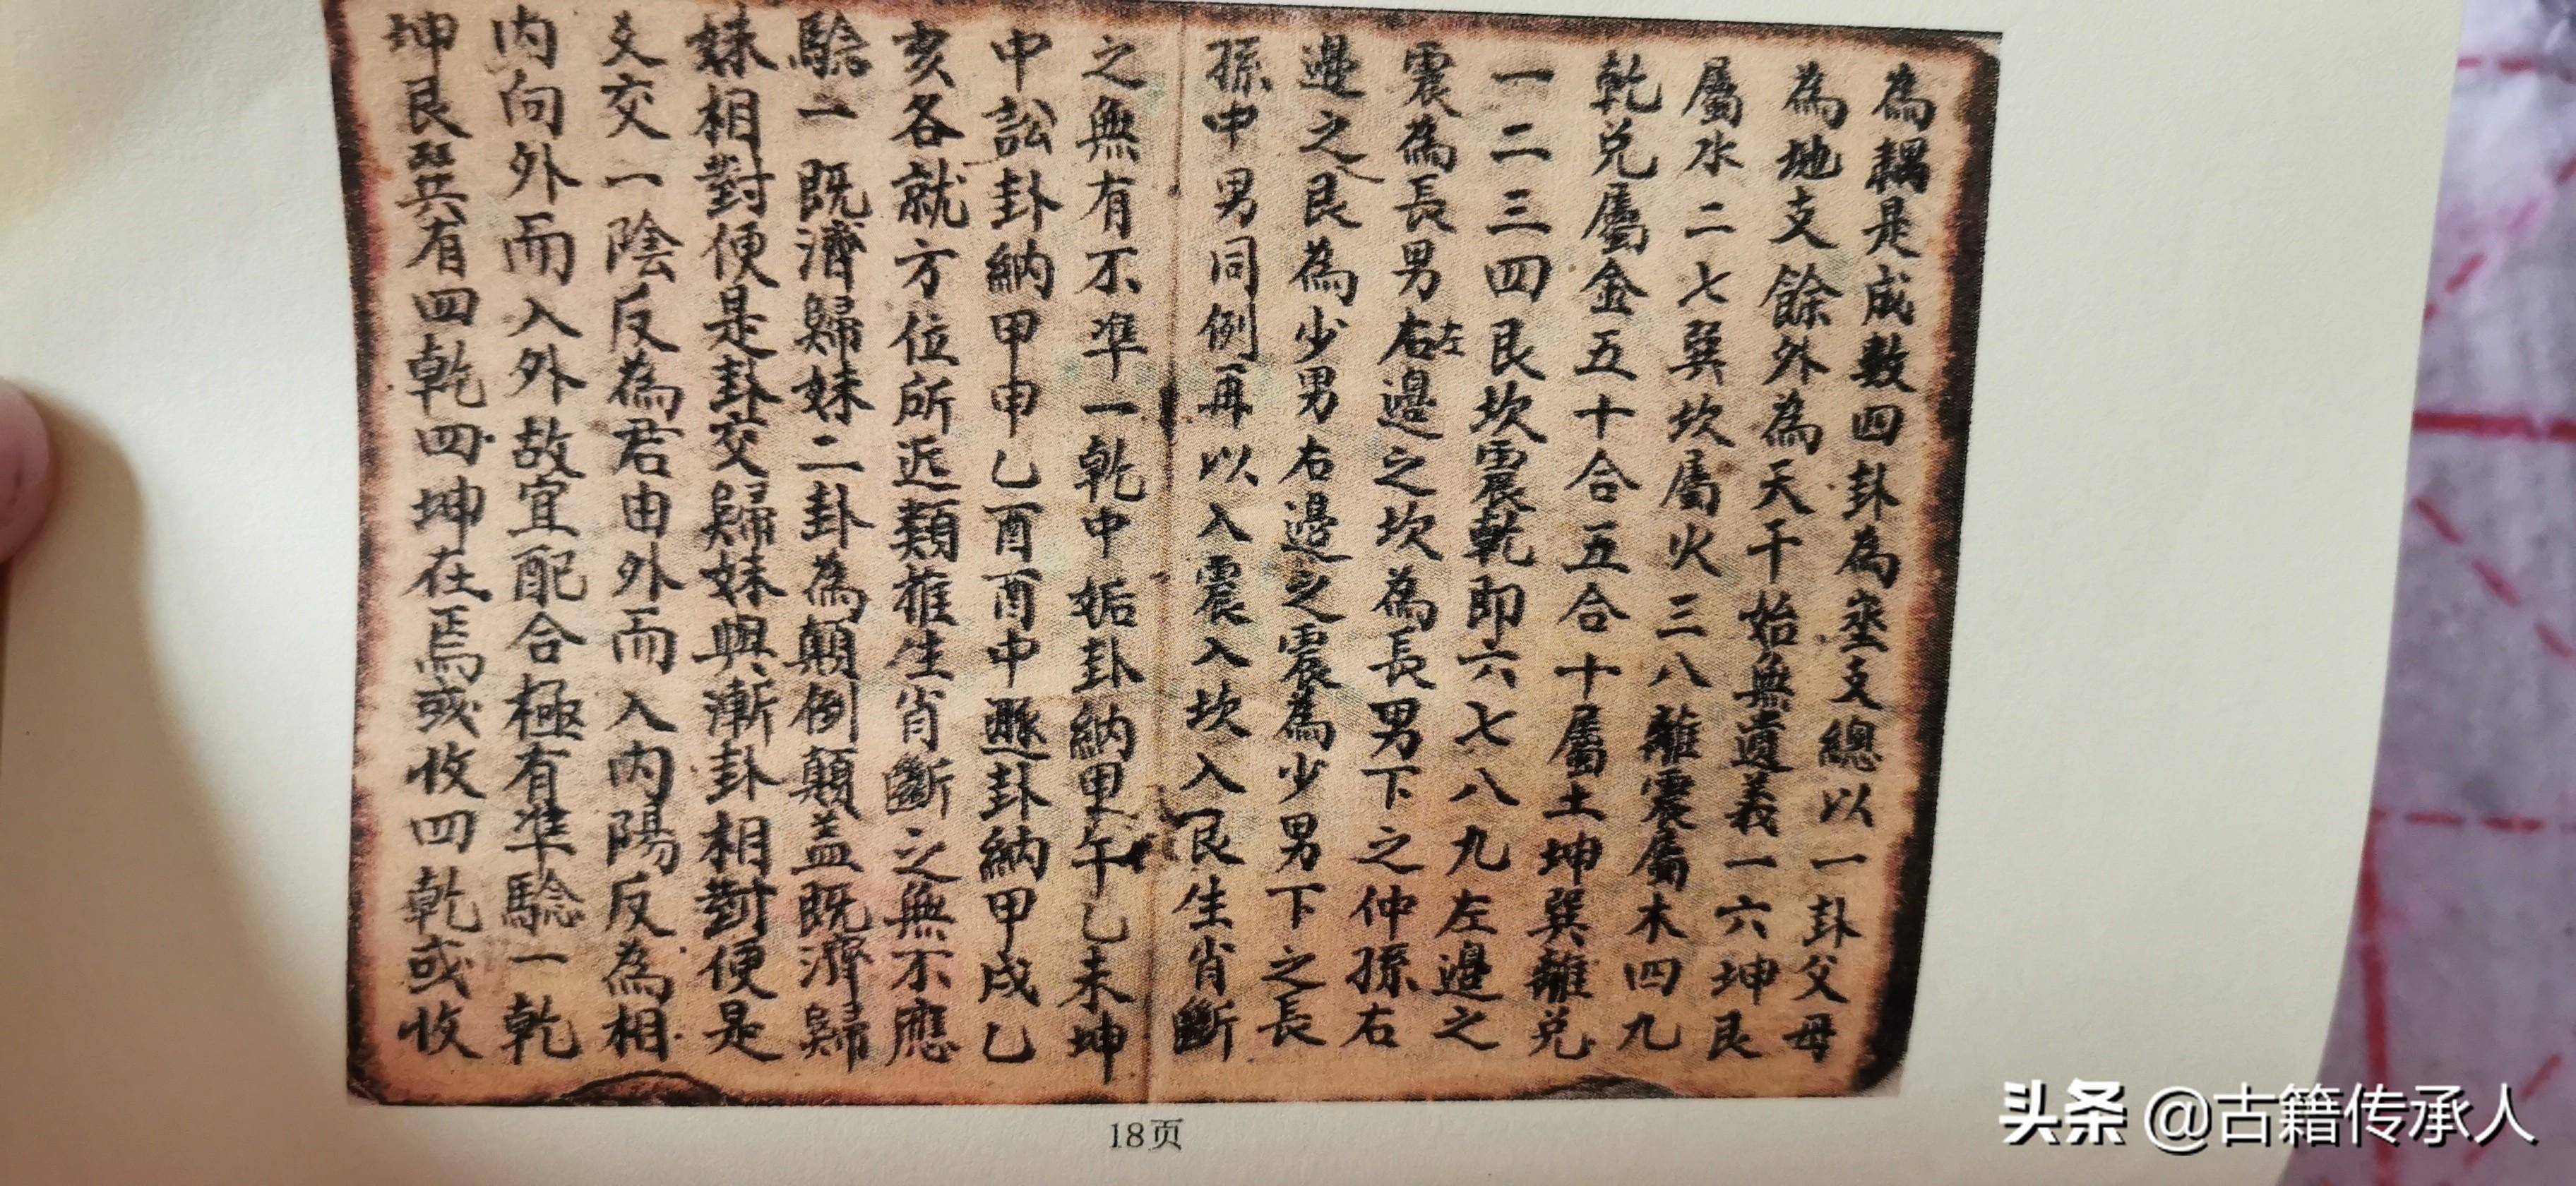 為耦是成數四卦為坐支總以一卦父母
為地支餘外為天干始無遺義一六坤艮
屬水二七巽坎屬火三八離震屬木四九
乾兌屬金五十合五合十屬土坤巽離兌
一二三四艮坎震乾即六七八九左邊之
震為長男右左邊之坎為長男下之仲孫右
邊之艮為少男右邊之震為少男下之長
孫中男同例再以入震入坎入艮生肖斷
之無有不準一乾中姤卦納甲午乙未坤
中訟卦納甲申乙酉酉中遯卦納甲戌乙
亥各就方位所近類推生肖斷之無不應
驗一既濟歸妹二卦為顛倒顛蓋既濟歸
妹相對便是卦交歸妹與漸卦相對便是
爻交一陰反為君由外而入內陽反為相
內向外而入外故宜配合極有準驗一乾
坤艮巽有四乾四坤在焉或收四乾或收
18页
头条 @古籍传承人